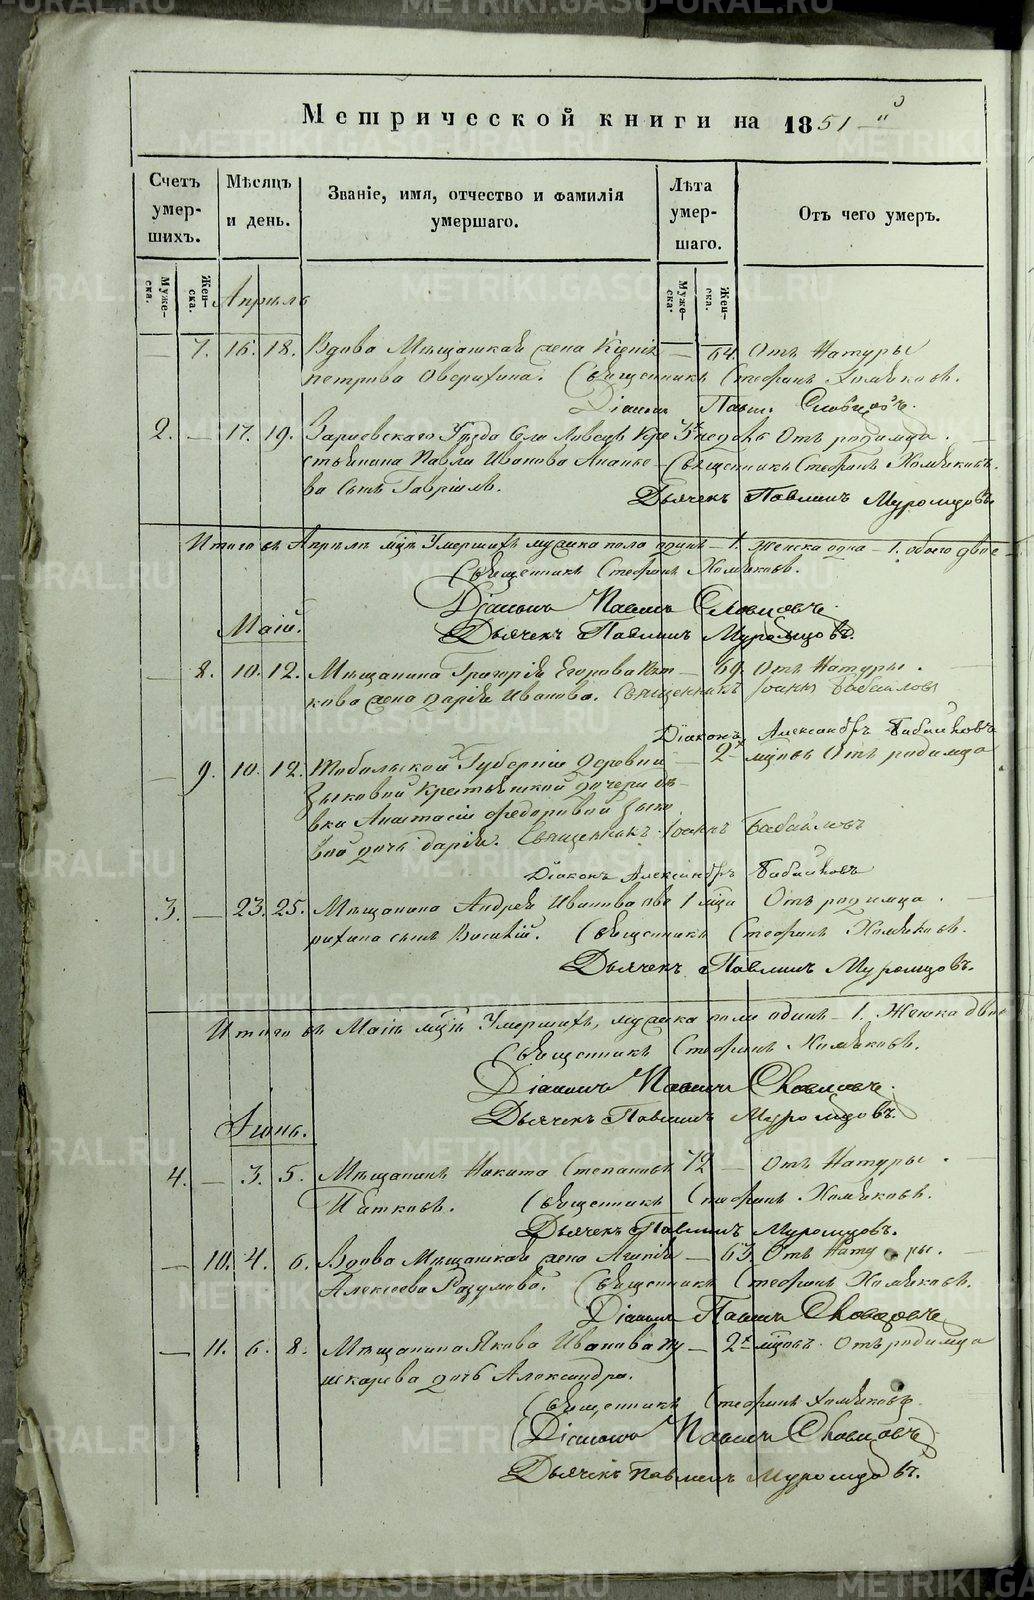 Метрической книги на 1851 й
Счетъ умер-шихъ.
Мѣсяцъ и день.
Званіе, имя, отчество и фамилія умершаго.
Лѣта умер-шаго.
Отъ чего умеръ.
Муже-ска.
Жен-ска.
Муже-ска.
Жен-ска.
Апрѣль
— 7. 16. 18. Вдова Мѣщанская жена — 64. Отъ Натуры
петрова Оверихина. Священникъ Стефанъ Хомяковъ.
Діаконъ Павелъ Словцовъ.
2. — 17. 19. уезда Села Кре 3х недель Отъ родимца.
стьянина Павла Иванова Ананье- Священникъ Стефанъ Хомяковъ.
ва сынъ Гавріилъ. Дьячекъ Павлинъ Муромцовъ.
Итого въ Апрѣлѣ мцѣ Умершихъ мужска пола одинъ – 1. женска одна – 1. обоего двое
Священникъ Стефанъ Хомяковъ.
Діаконъ Павелъ Словцовъ.
Дьячекъ Павлинъ Муромцовъ.
Маій.
— 8. 10. 12. Мѣщанина Григорія Егорова — 69. Отъ Натуры.
кова жена Дарія Иванова. Священникъ Іоаннъ Бабайловъ
Діаконъ Александръ Бабайловъ
— 9. 10. 12. Тобольской Губерніи Деревни — 2х мцовъ Отъ родимца
Зыковой Крестьянской дочери дѣ-
вки Анастасіи Федоровой Зыко
вой дочь Дарія. Священникъ Іоаннъ Бабайловъ
Діаконъ Александръ Бабайловъ
3. — 23. 25. Мѣщанина Андрея Иванова Ове 1 мца Отъ родимца.
рихина сынъ Василій. Священникъ Стефанъ Хомяковъ.
Дьячекъ Павлинъ Муромцовъ.
Итого въ Маіѣ мцѣ Умершихъ, мужска пола одинъ – 1. Женска двѣ
Священникъ Стефанъ Хомяковъ.
Діаконъ Павелъ Словцовъ.
Дьячекъ Павлинъ Муромцовъ.
Іюнь.
4. — 3. 5. Мѣщанинъ Никита Степановъ 72 — Отъ Натуры.
Ибатковъ. Священникъ Стефанъ Хомяковъ.
Дьячекъ Павлинъ Муромцовъ.
— 10. 4. 6. Вдова Мѣщанская жена Агапія — 63. Отъ Натуры.
Алексеева Разумова. Священникъ Стефанъ Хомяковъ.
Діаконъ Павелъ Словцовъ
— 11. 6. 8. Мѣщанина Якова Иванова Пу — 2х мцовъ. Отъ родимца
шкарева дочь Александра.
Священникъ Стефанъ Хомяковъ.
Діаконъ Павелъ Словцовъ
Дьячекъ Павлинъ Муромцовъ.
METRIKI.GASO-URAL.RU